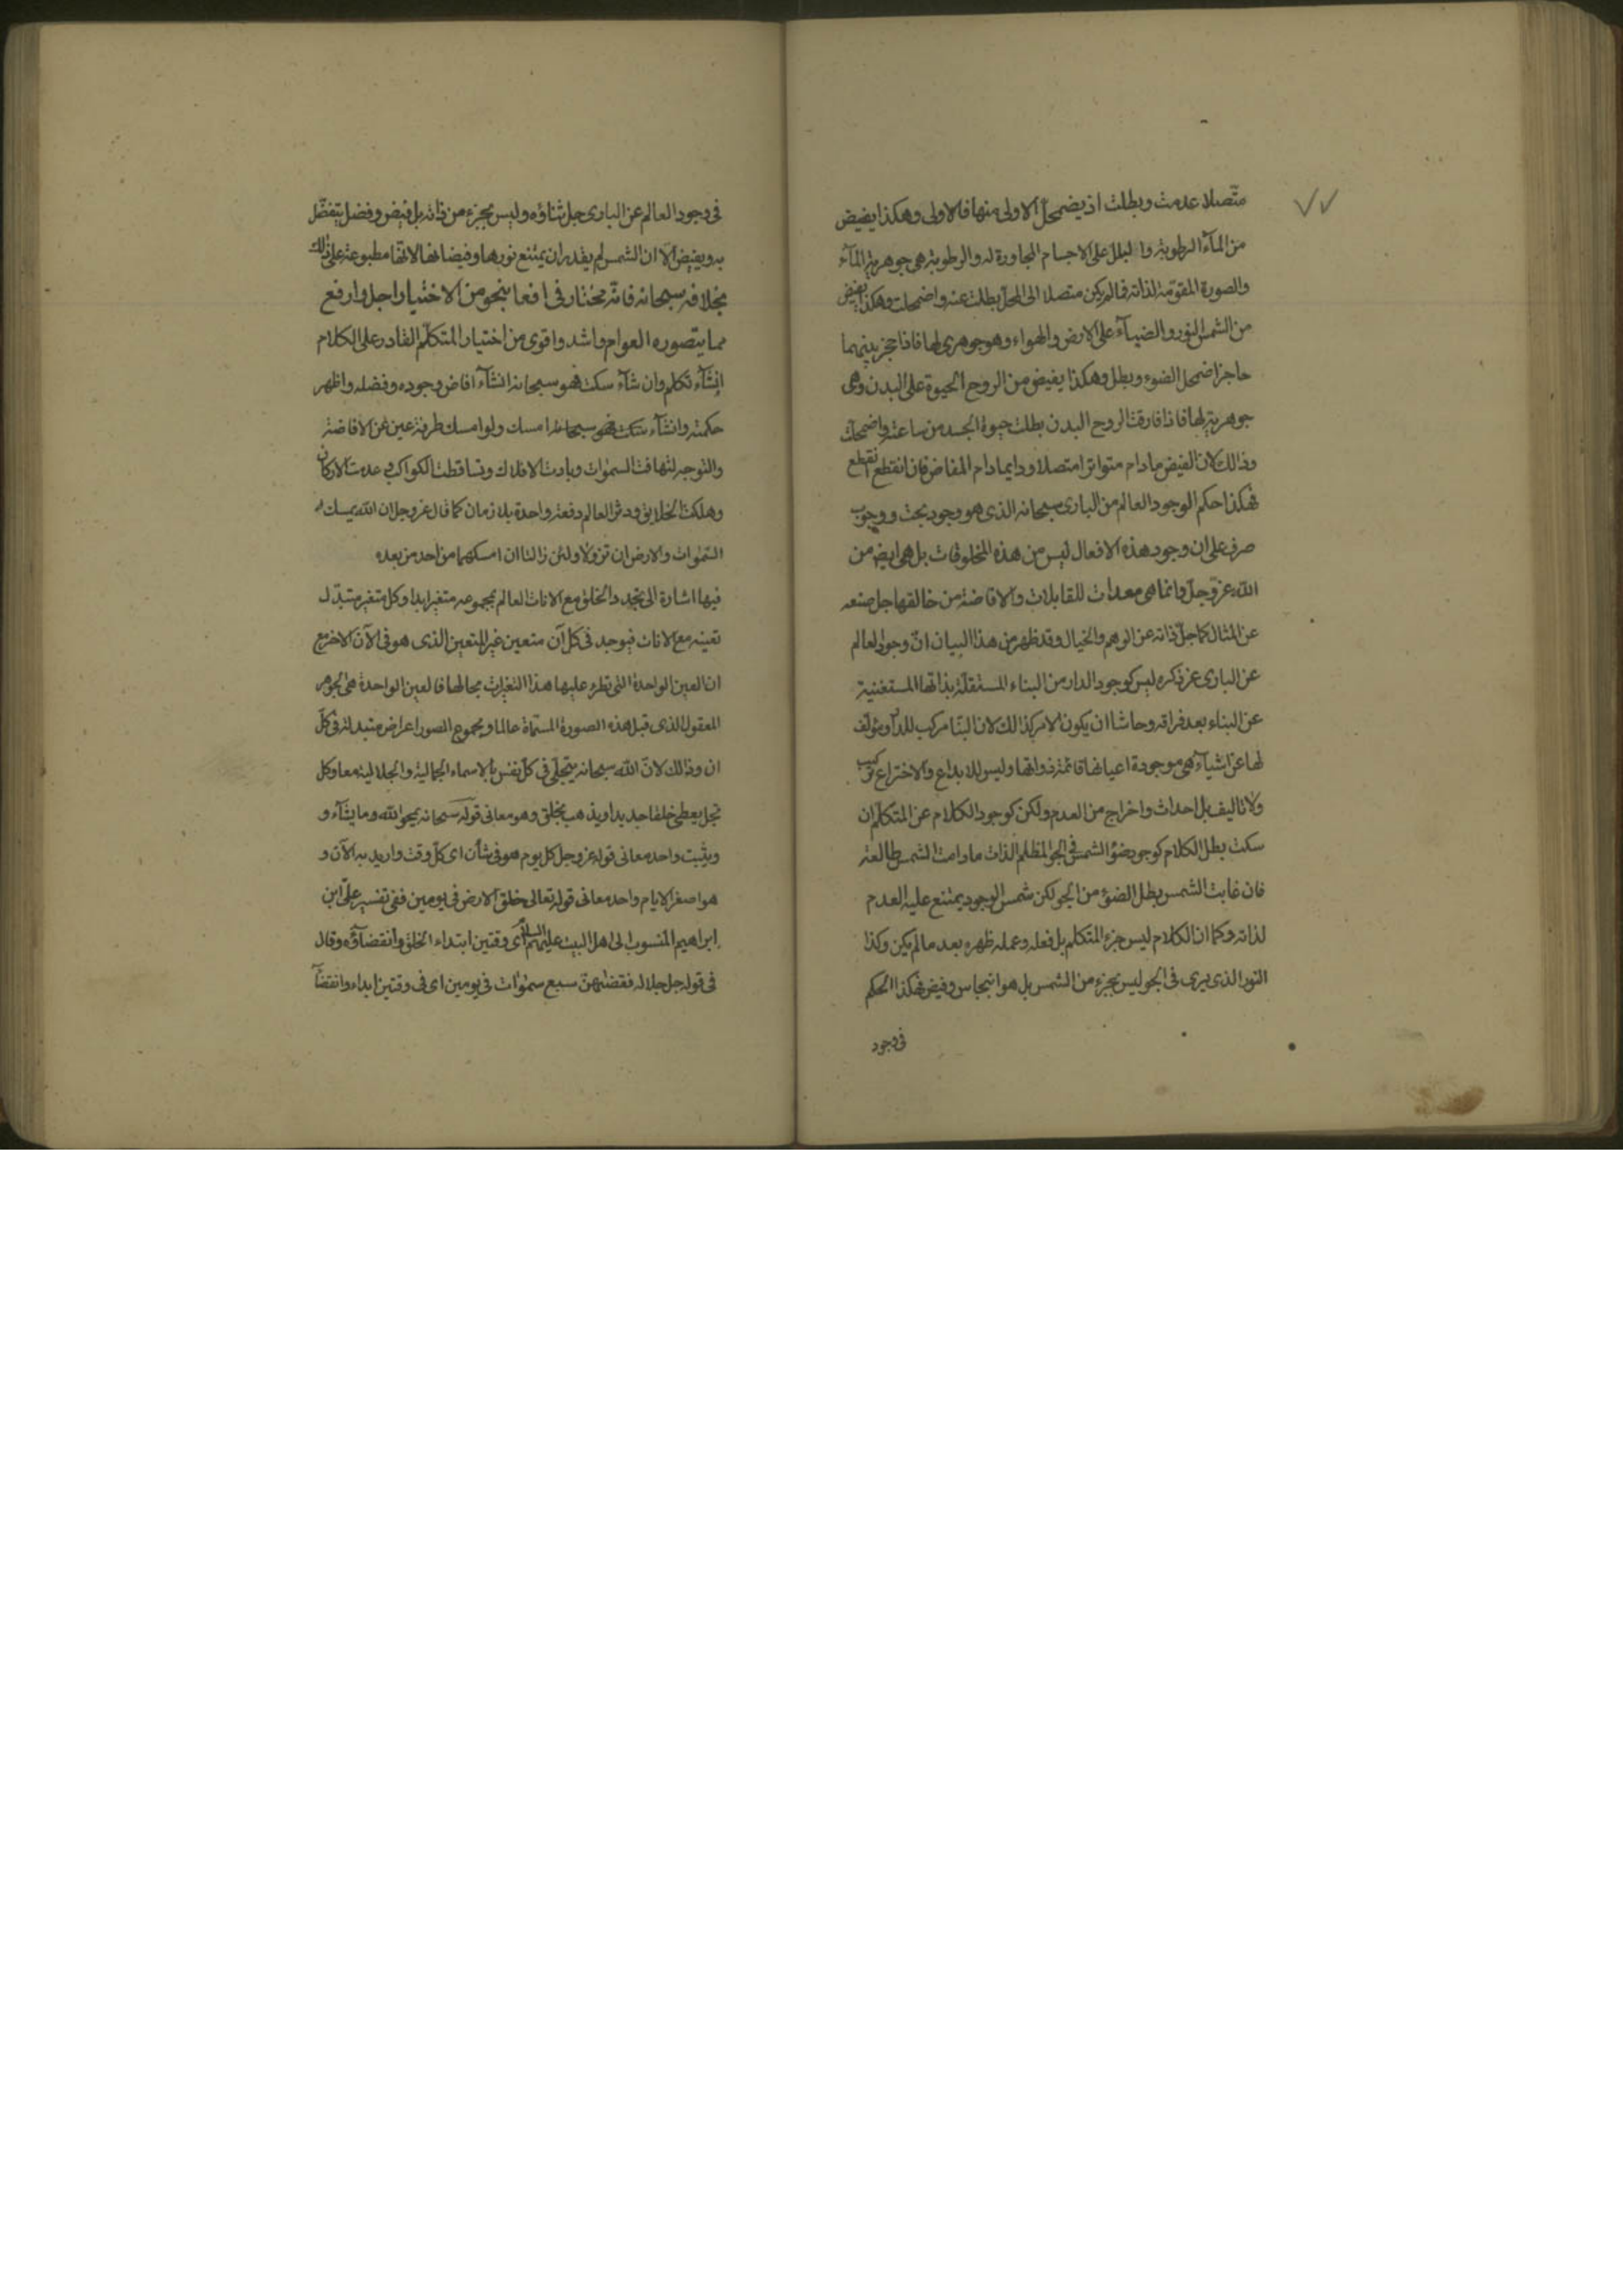 متّصلا عدمت وبطلت اذ يضمحل الاولى منها فالاولى وهكذا يفيض
من المآء الرطوبة والبلل على الاجسام المجاورة له والرطوبة هى جوهرية المآء
والصورة المقومة لذاته فمالم يكن متصلا الى المحل بطلت عنه واضمحلت وهكذا يفيض
من الشمس النور والضيآء على الارض والهواء وهو جوهرى لها فاذا حجز بينهما
حاجز اضمحل الضوء وبطل وهكذا يفيض من الروح الحيوة على البدن وهى
جوهرية لها فاذا فارقت الروح البدن بطلت حيوة الجسد من ساعته واضمحلت
وذالك لان الفيض مادام متواترا متصلا ودايما دام المفاض فان انقطع انقطع
فهكذا حكم الوجود العالم من البارى سبحانه الذى هو وجود بحت ووجوب
صرف على ان وجود هذه الافعال ليس من هذه المخلوقات بل هى ايض من
الله عزّ وجلّ وانما هى معدات للقابلات والافاضة من خالقها جل صنعه
عن المثال كما جلّ ذاته عن الوهم والخيال وقد ظهر من هذا البيان انّ وجود العالم
عن البارى عز ذكره ليس كوجود الدار من البناء المستقلة بذاتها المستغنية
عن البناء بعد فراقه وحاشا ان يكون الامر كذالك لان البنا مركب للدار ومؤلف
لها عن اشيآء هى موجودة اعيانها قائمة ذواتها وليس للابداع والاختراع تركيب
ولا تاليف بل احداث واخراج من العدم ولكن كوجود الكلام عن المتكلم ان
سكت بطل الكلام كوجود ضوء الشمس فى الجو المظلم الذات مادامت الشمس طالعة
فان غابت الشمس بطل الضوء من الجو لكن شمس الوجود يمتنع عليه العدم
لذاته وكما ان الكلام ليس جزء المتكلم بل فعله وعمله ظهر به بعد مالم يكن وكذا
النور الذى يرى فى الجو ليس بجزء من الشمس بل هو انبجاس وفيض فهكذا الحكم
فى وجود
فى وجود العالم عن البارى جل ثناؤه وليس بجزء من ذاته بل فيض وفضل يتفضّل
به ويفيض الّا ان الشمس لم يقدر ان يمتنع نورها وفيضانها لانها مطبوعة على ذلك
بخلافه سبحانه فانه مختار فى افعا بنحو من الاختيار اجل وارفع
مما يتصوره العوام واشد واقوى من اختيار المتكلّم القادر على الكلام
انشآء تكلم وان شآء سكت فهو سبحانه انشآء افاض وجوده وفضله واظهر
حكمته وانشآء امسك ولو امسك طرفة عين عن الافاضة
والتوجه لتهافت السموات وبادت الافلاك وتساقطت الكواكب وعدمت الاركان
وهلكت الخلايق ودثر العالم دفعة واحدة بلا زمان كما قال عز وجل ان الله يمسك
السموات والارض ان تزولا ولئن زالتا ان امسكهما من احد من بعده
فيها اشارة الى تجدد الخلق مع الانات العالم بمجموعه متغير ابدا وكل متغير متبدل
تعينه مع الانات فيوجد فى كل آن متعين غير المتعين الذى هو فى الآن الاخر مع
ان العين الواحدة التى تطرء عليها هذا التغيرات بحالها فالعين الواحدة هى الجوهر
المعقول الذى قبل هذه الصورة المسماة عالما ومجموع الصور اعراض متبدلة فى كلّ
ان وذالك لانّ الله سبحانه يتجلّى فى كل نفس بالاسماء الجمالية والجلالية معا وكل
تجل يعطى خلقا جديدا ويذهب بخلق وهو معانى قوله سبحانه يمحو الله وما يشآء و
ويثبت واحد معانى قوله عز وجل كل يوم هو فى شأن اى كلّ وقت واريد به الآن و
هو اصغر الايام واحد معانى قوله تعالى خلق الارض فى يومين ففى تفسير علىّ ابن
ابراهيم المنسوب الى اهل البيت عليهم السلام اى وقتين ابتداء الخلق وانقضآؤه وقال
فى قوله جل جلاله فقضٰهنّ سبع سمٰوات فى يومين اى فى وقتين ابداء وانقضآ